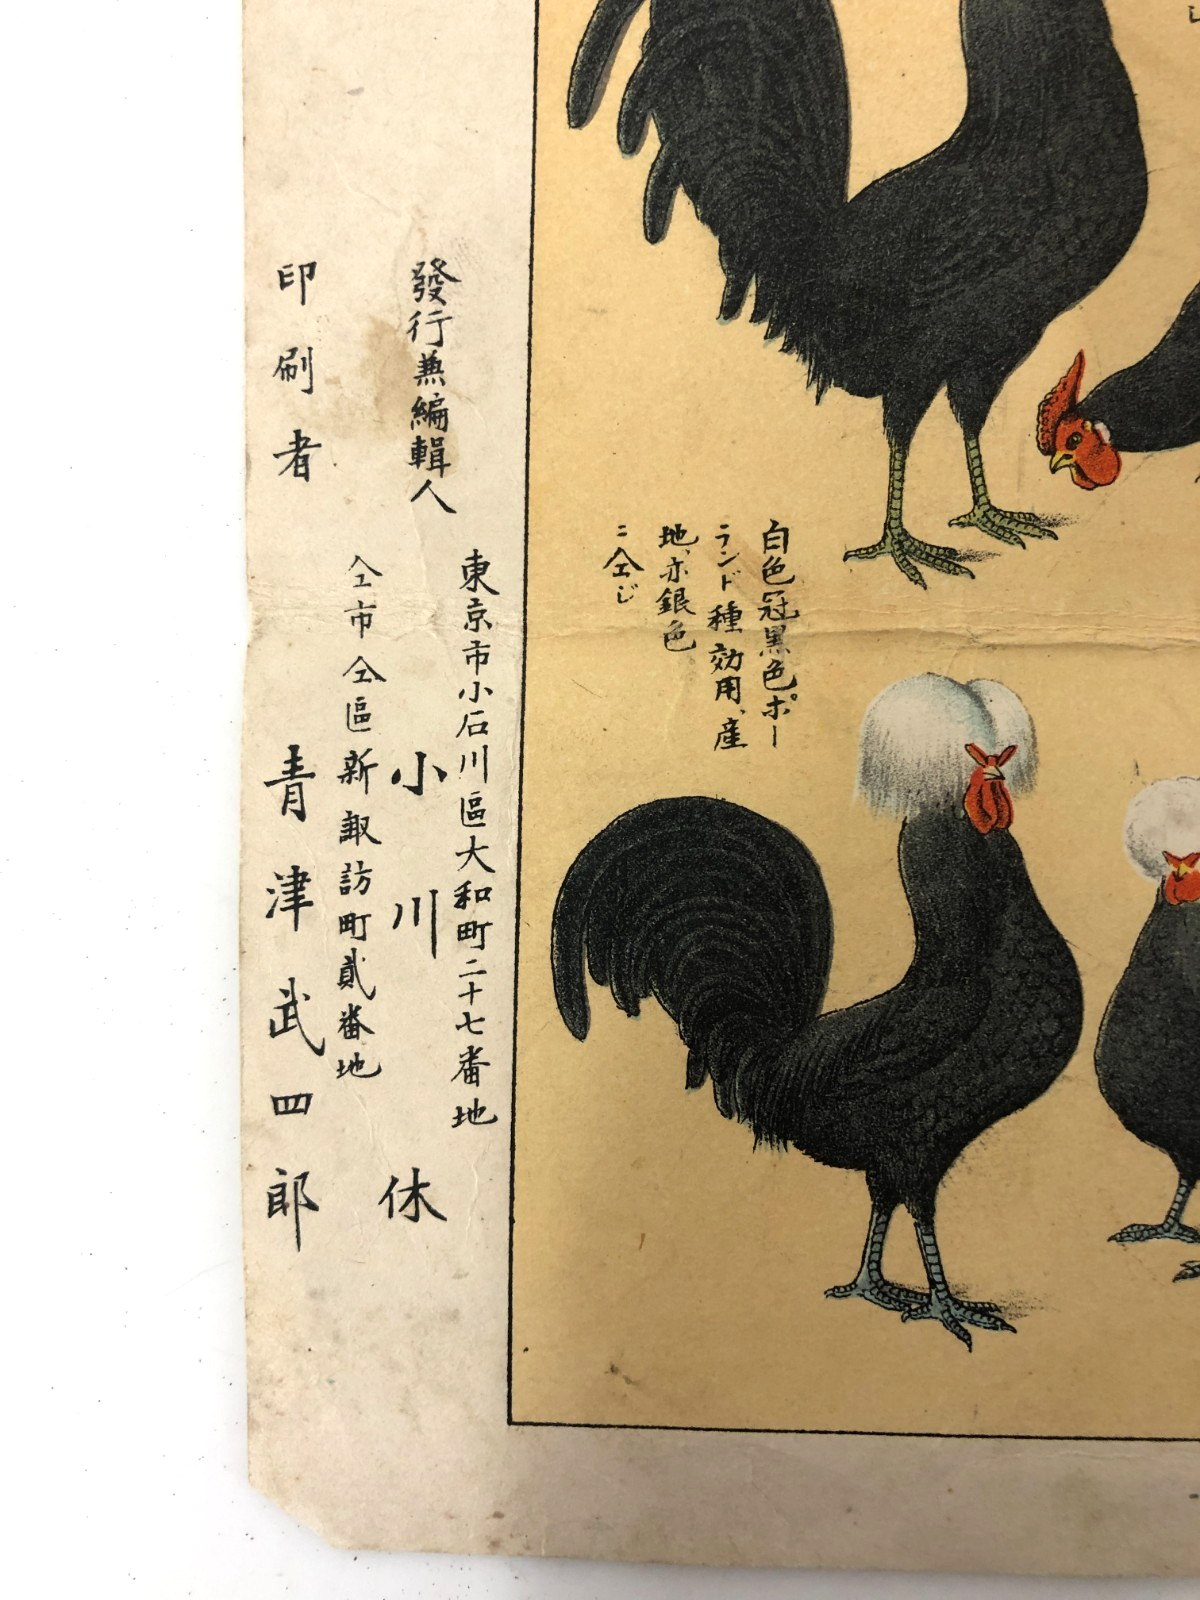 白色冠黒色ポー
ランド種効用、産
地、亦銀色
ニ仝じ
發行兼編輯人
東京市小石川區大和町二十七番地
小川 休
印刷者
仝市仝區新諏訪町貳番地
青津武四郎